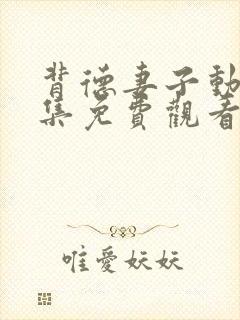 背德妻子動
集免費觀看
唯愛妖妖